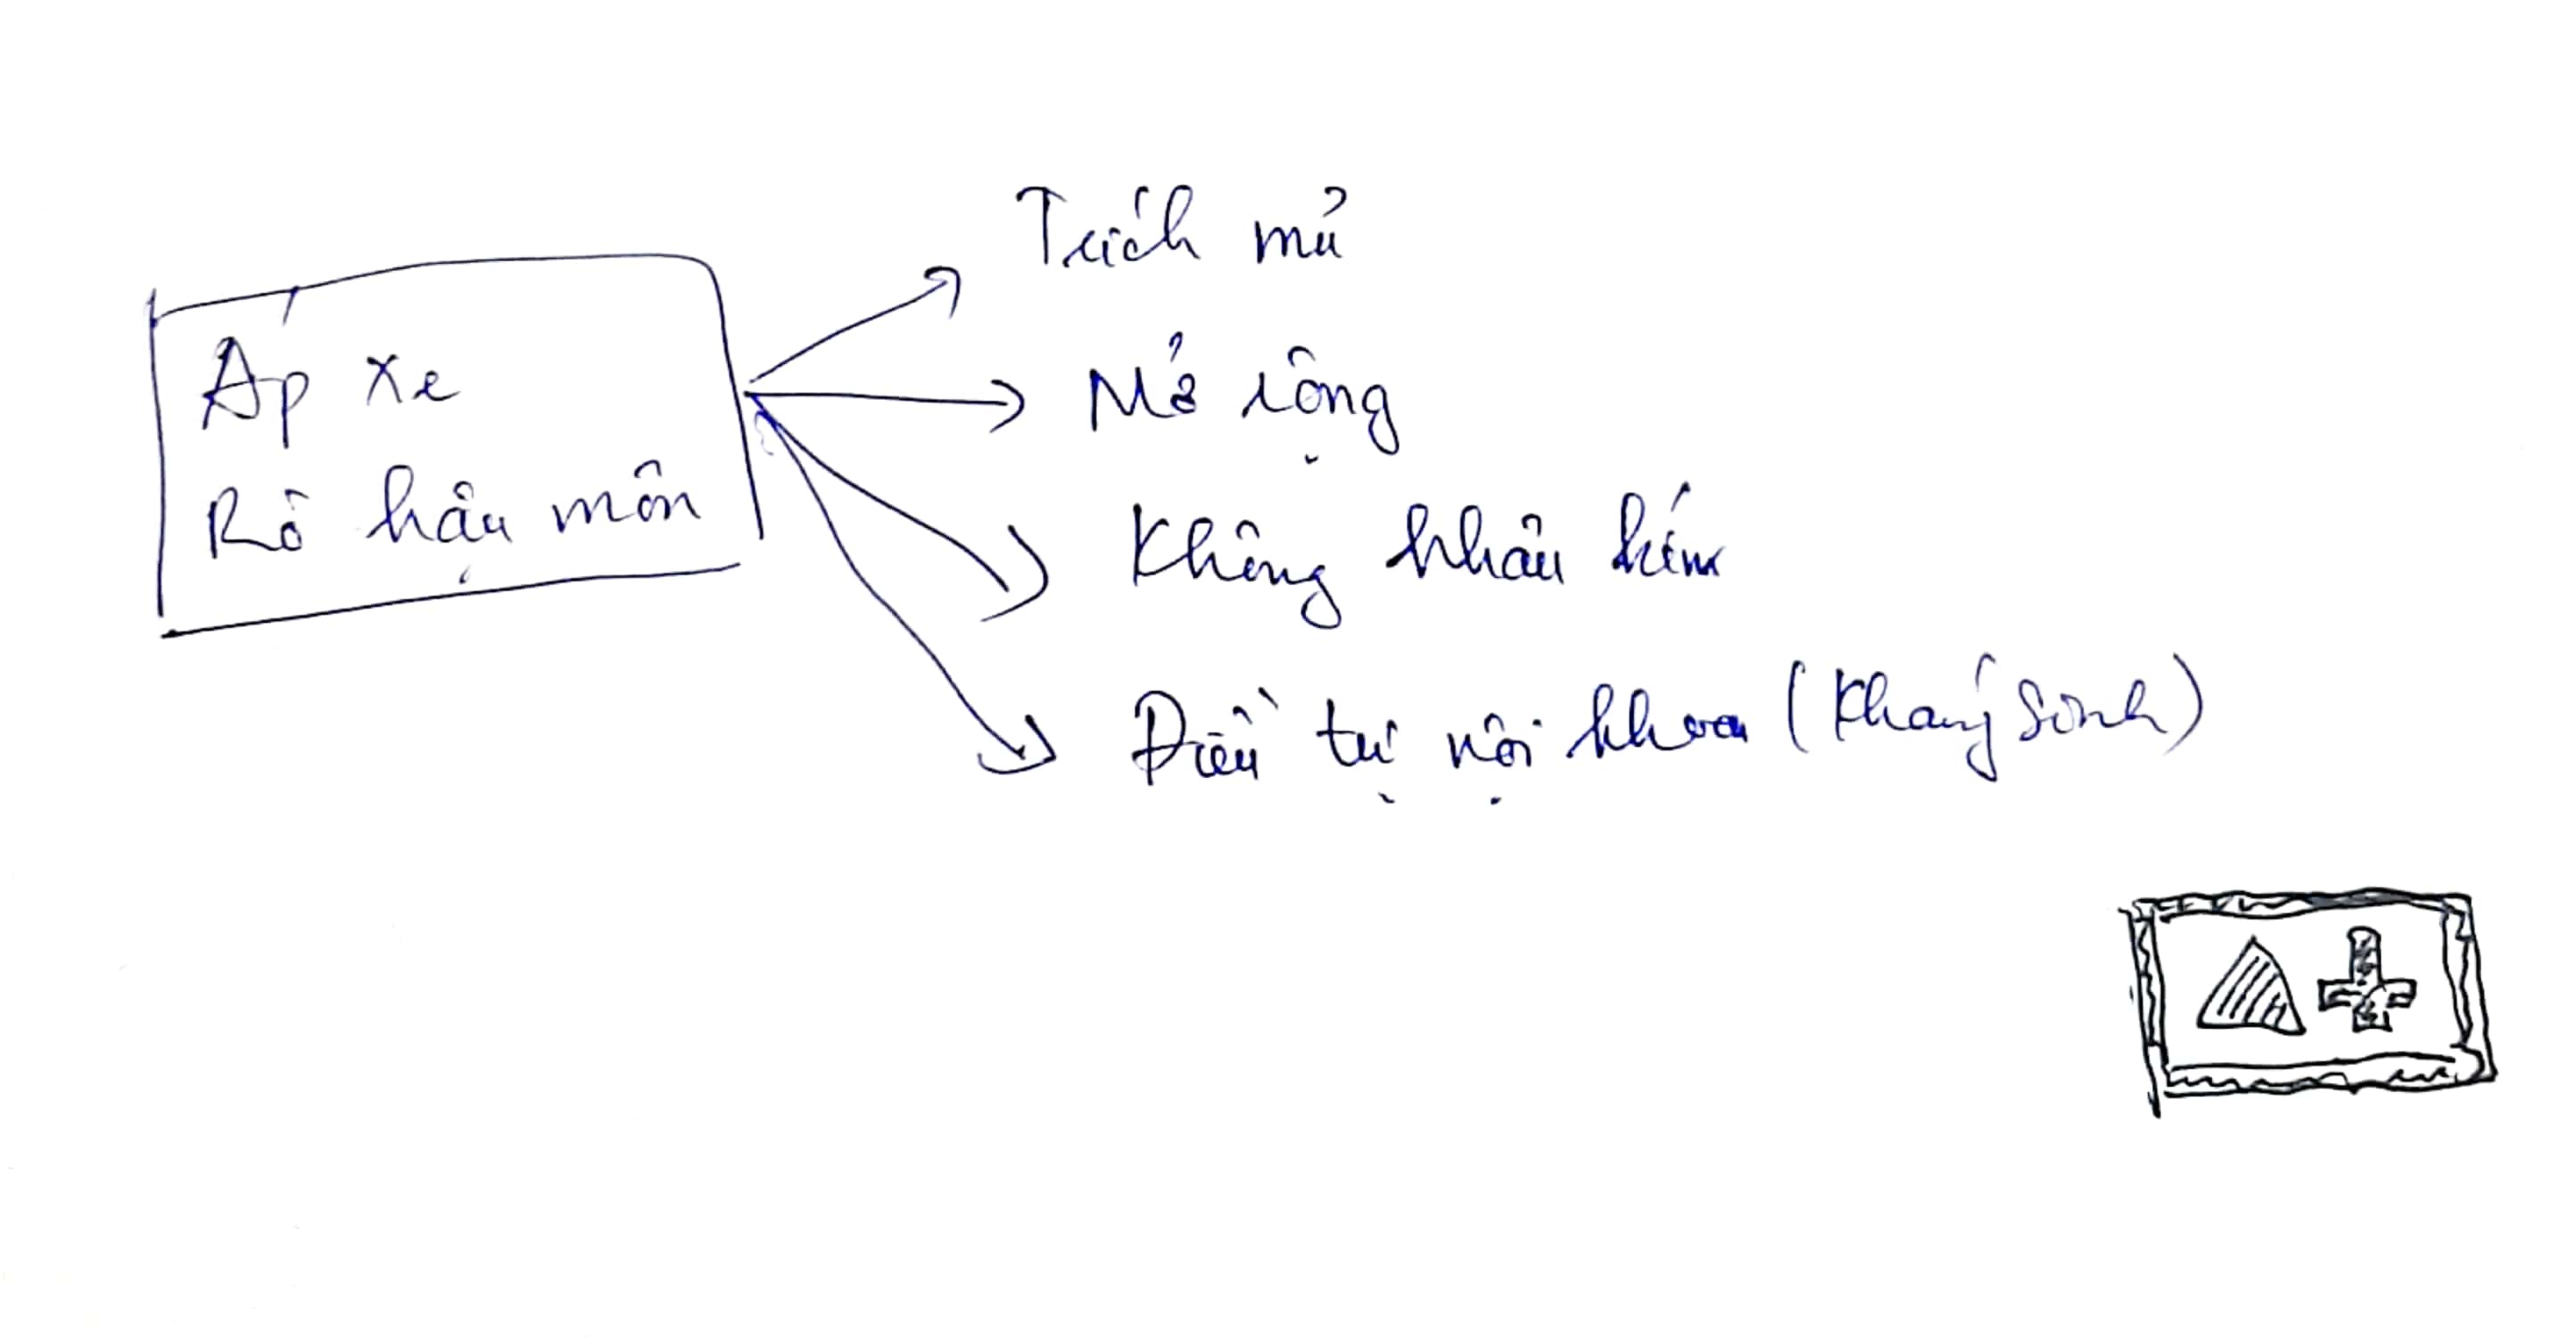 Áp xe
Rò hậu môn
Trích mủ
Mở rộng
Không khâu kín
Điều trị nội khoa (Kháng sinh)